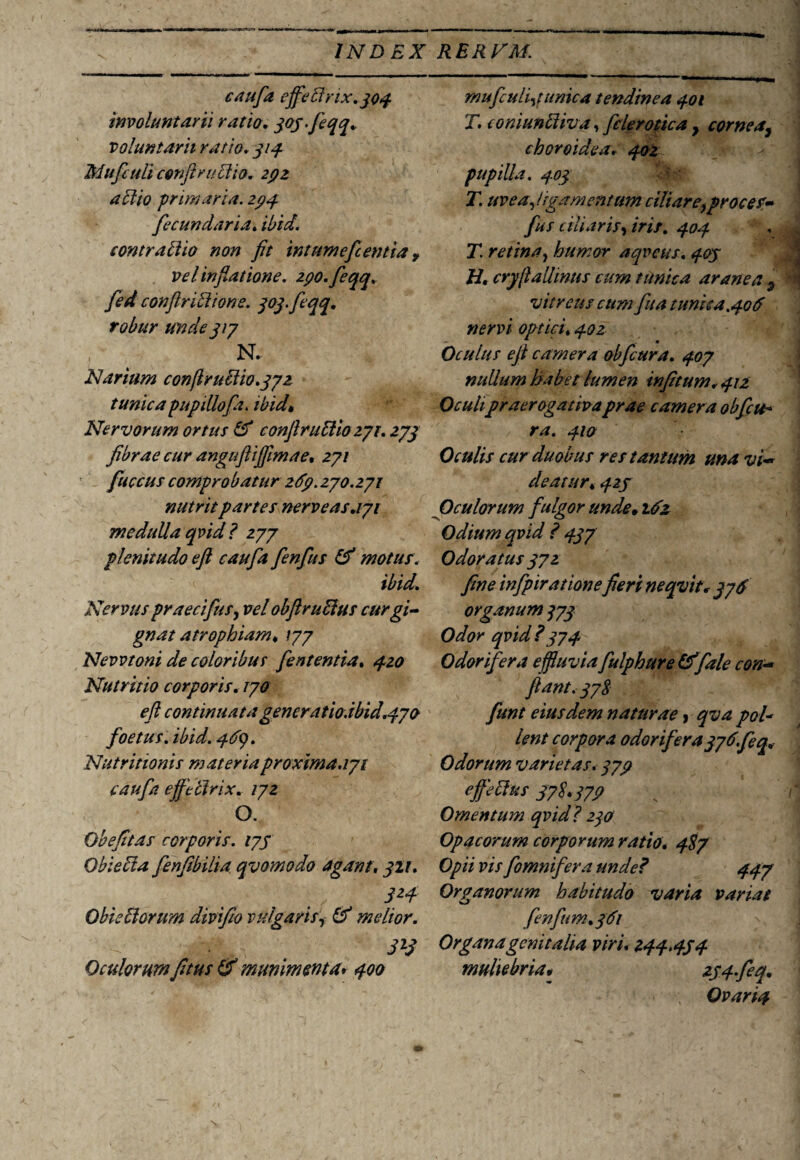 INDEX RERVM.
cauſa effectrix. 304
involuntarii ratio. 305. ſeqq.
voluntarii ratio. 314
Muſculi conſtructio. 292
actio primaria. 294
ſecundaria. ibid.
contractio non fit intumeſcentia,
vel inflatione. 290. ſeqq.
ſed conſtrictione. 303. ſeqq.
robur unde 317
N.
Narium conſtructio. 372
tunica papilloſa. ibid.
Nervorum ortus & conſtructio 271. 273
fibrae cur anguſtiſſimae. 271
ſuccus comprobatur 269. 270. 271
nutrit partes nerveas. 171
medulla qvid? 277
plenitudo eſt cauſa ſenſus & motus.
ibid.
Nervus praeciſus, vel obſtructus cur gi-
gnat atrophiam. 177
Nevvtoni de coloribus ſententia. 420
Nutritio corporis. 170
eſt continuata generatio. ibid. 470
foetus. ibid. 469.
Nutritionis materia proxima. 171
cauſa effectrix. 172
O.
Obeſitas corporis. 175
Obiecta ſenſibilia qvomodo agant. 321.
324
Obiectorum diviſio vulgaris, & melior.
323
Oculorum ſitus & munimenta. 400
muſculi, tunica tendinea 401
T. coniunctiva, ſclerotica, cornea,
choroidea. 402
pupilla. 403
T. uvea, ligamentum ciliare, proceſ-
ſus ciliaris, iris. 404
T. retina, humor aqveus. 405
H. cryſtallinus cum tunica aranea,
vitreus cum ſua tunica. 406
nervi optici. 402
Oculus eſt camera obſcura. 407
nullum habet lumen inſitum. 412
Oculi praerogativa prae camera obſcu-
ra. 410
Oculis cur duobus res tantum una vi-
deatur. 425
Oculorum fulgor unde. 262
Odium qvid? 437
Odoratus 372
ſine inſpiratione fieri neqvit. 376
organum 373
Odor qvid? 374
Odorifera effluvia ſulphure & ſale con-
ſtant. 378
ſunt eiusdem naturae, qva pol-
lent corpora odorifera 376. ſeq.
Odorum varietas. 379
effectus 378. 379
Omentum qvid? 230
Opacorum corporum ratio. 487
Opii vis ſomnifera unde? 447
Organorum habitudo varia variat
ſenſum. 361
Organa genitalia viri. 244. 454
muliebria. 254. ſeq.
Ovaria